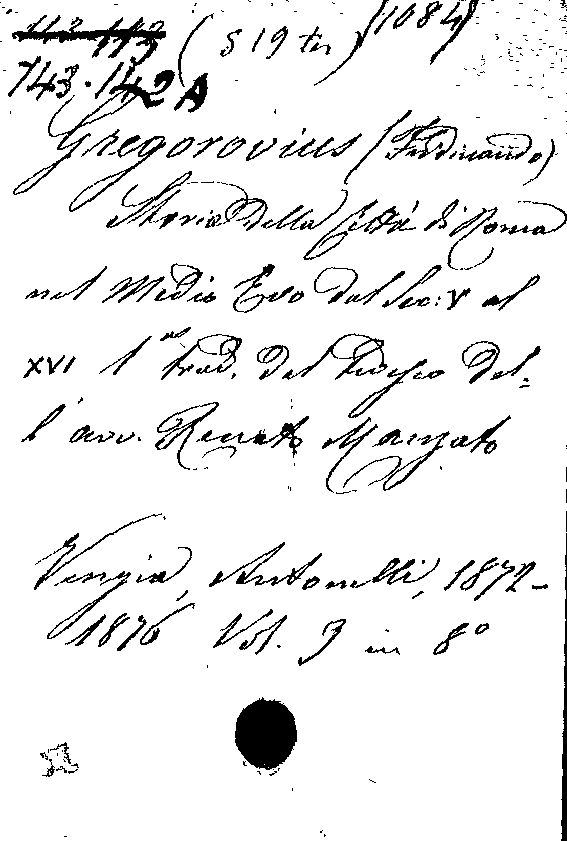 113 113 (S 19 ter) (1084)
743.142 A
Gregorovius (Ferdinando)
Storia Della Città di Roma
nel Medio Evo dal Sec: V al
XVI 1ª trad. dal tedesco Del-
l'avv. Renato Manzato
Venezia, Antonelli, 1872-
1876 Vol. 9 in 8º